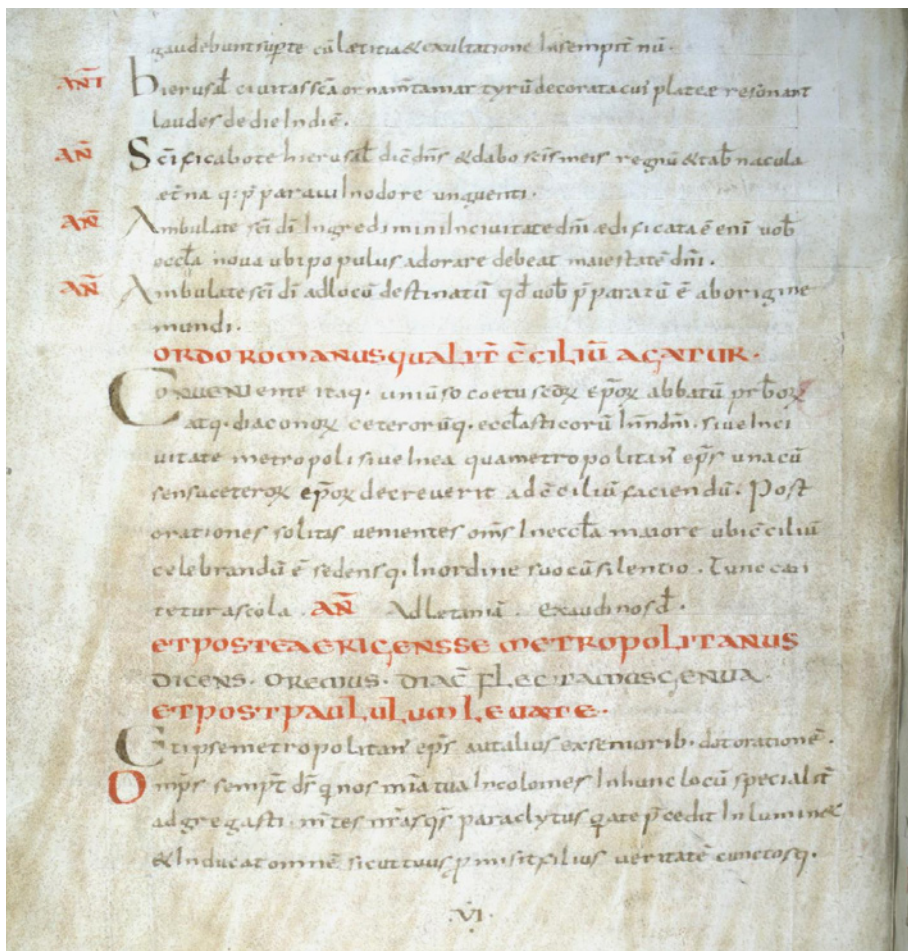 gaudebunt supte cū lætitia & exultatione In sempit̄nū.
AÑT hierusał ciuitas sc̄a ornam̄ta martyrū decorata cui plateæ resonant
laudes de die In diē.
AÑ Sc̄ificabo te hierusał dic̄ dn̄s & dabo sc̄is meis regnū & tab̄nacula
æt̄na q: p̄paraui In odore unguenti.
AÑ Ambulate sc̄i dī Ingredimini In ciuitatē dn̄i ædificata ē enī uob̄
eccła noua ubi populus adorare debeat maiestatē dn̄i.
AÑ Ambulate sc̄i dī ad locū destinatū qd̄ uob̄ p̄paratū ē ab origine
mundi.
ORDO ROMANUS QUALIT̄ C̄CILIŪ AGATUR.
CONUENIente itaq. uniuso coetu sc̄oꝝ ep̄oꝝ abbatū pr̄b̄oꝝ
atq. diaconoꝝ ceterorūq. eccłasticorū In n̄ dn̄i. siue In ci
uitate metropoli siue In ea qua metropolitan̄ ep̄s una cū
sensu ceteroꝝ ep̄oꝝ decreuerit ad c̄ciliū faciendū. Post
orationes solitas uenientes om̄s In eccła maiore ubi c̄ciliū
celebrandū ē sedensq. In ordine suo cū silentio. Tunc can
tetur a scola. AÑ Ad letaniā. Exaudi nos d̄.
ET POSTEA ERIGENS SE METROPOLITANUS
DICENS. OREMUS. DIAC̄ FLECTAMUS GENUA.
ET POST PAULULUM LEUATE.
Et ipse metropolitan̄ ep̄s aut alius exseniorib. dat orationē.
Om̄ps sempit̄ ds̄ q nos mīa tua Incolomes In hunc locū specialit̄
adgregasti. m̄tes nr̄as qs̄ paraclytus q̄ a te p̄cedit Inlumin&
& Inducat omnē sicut tuus ꝓmisit filius ueritatē cunctosq.
.VI.